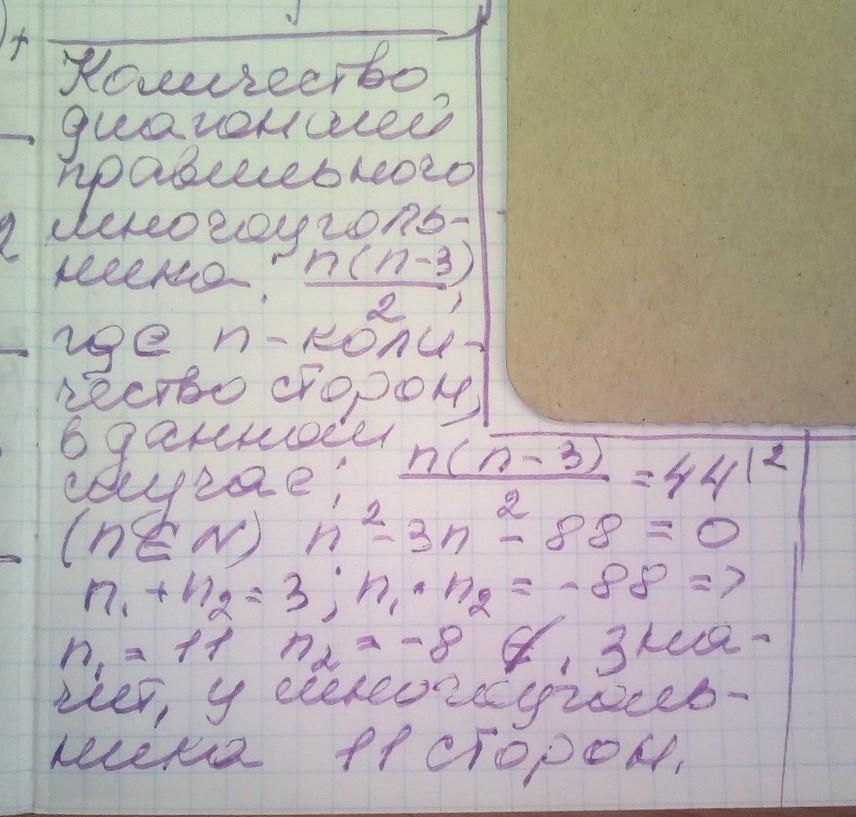 Количество
диагоналей
правильного
многоуголь-
ника: n(n-3)/2,
где n - коли-
чество сторон,
в данном
случае: n(n-3)/2 = 44 |2
(n∈N) n² - 3n - 88 = 0
n₁ + n₂ = 3; n₁ · n₂ = -88 =>
n₁ = 11 n₂ = -8 ∉, зна-
чит, у многоуголь-
ника 11 сторон.